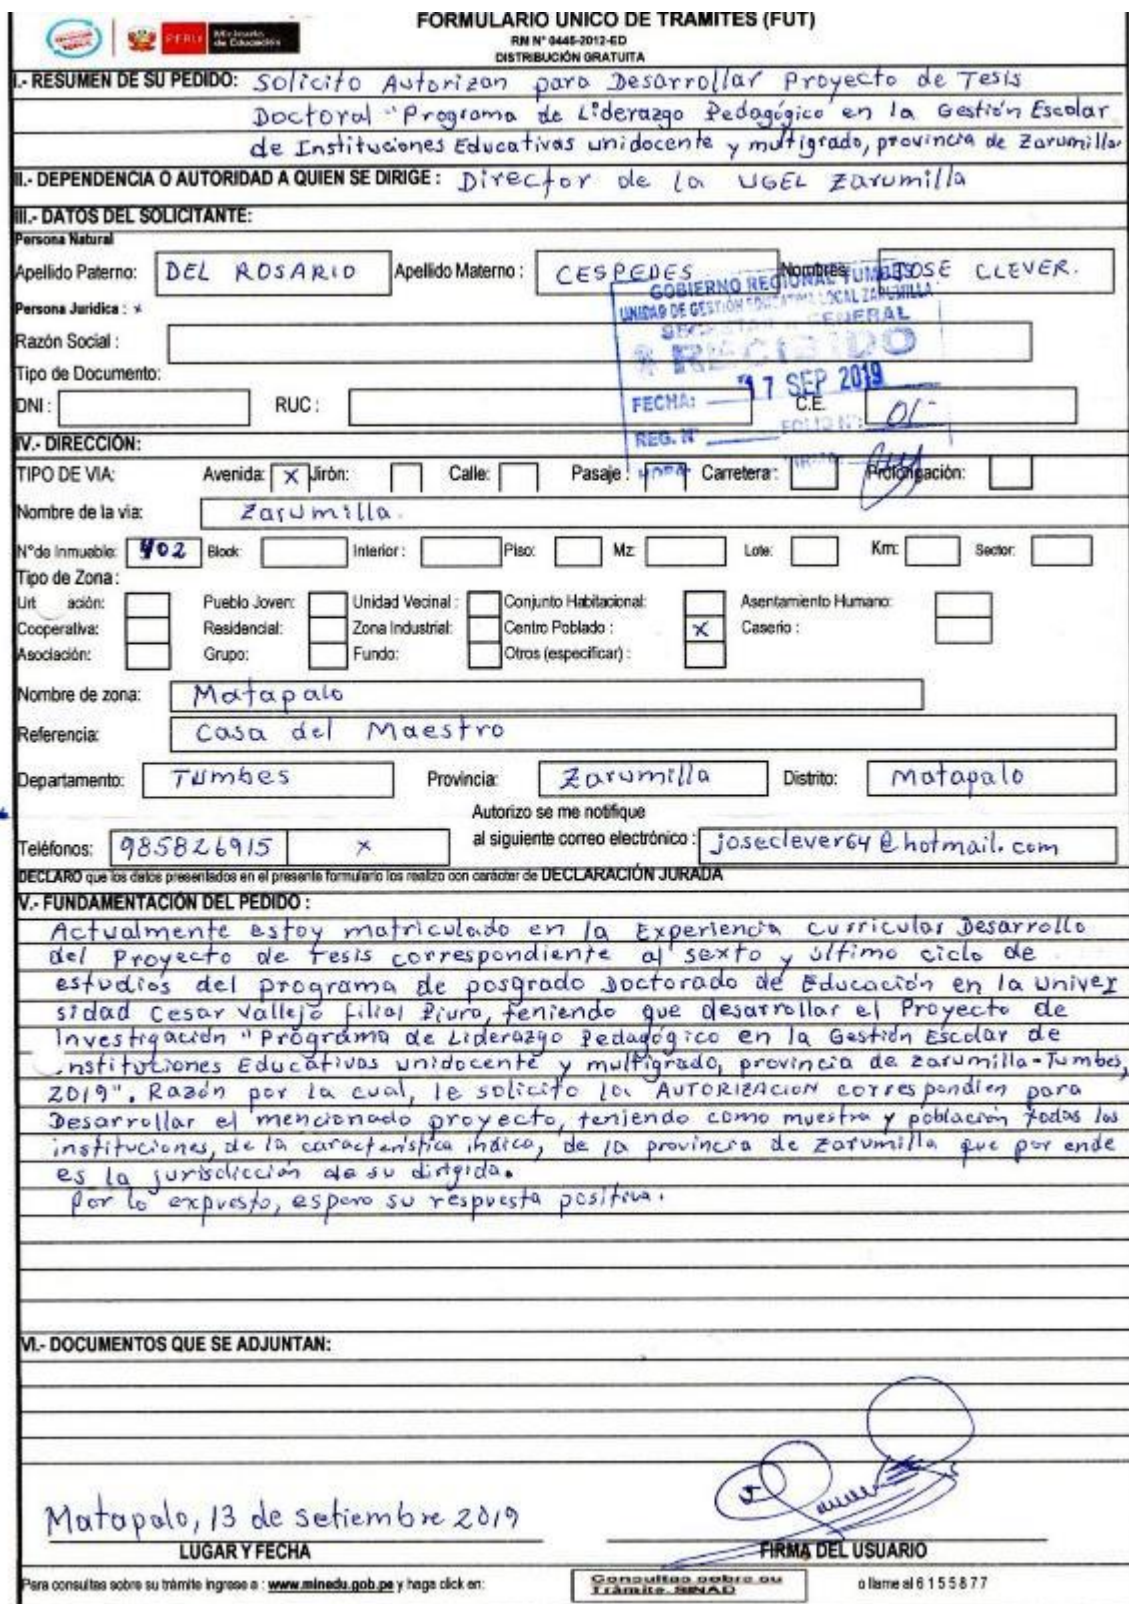 PERÚ Ministerio de Educación
FORMULARIO UNICO DE TRAMITES (FUT)
RM N° 0445-2012-ED
DISTRIBUCIÓN GRATUITA
I.- RESUMEN DE SU PEDIDO: Solicito Autorizan para Desarrollar Proyecto de Tesis
Doctoral "Programa de Liderazgo Pedagógico en la Gestión Escolar
de Instituciones Educativas unidocente y multigrado, provincia de Zarumilla.
II.- DEPENDENCIA O AUTORIDAD A QUIEN SE DIRIGE: Director de la UGEL Zarumilla
III.- DATOS DEL SOLICITANTE:
Persona Natural
Apellido Paterno: DEL ROSARIO Apellido Materno: CESPEDES Nombres: JOSE CLEVER.
GOBIERNO REGIONAL TUMBES
UNIDAD DE GESTIÓN EDUCATIVA LOCAL ZARUMILLA
SECRETARIA GENERAL
RECIBIDO
17 SEP 2019
FECHA:
REG. N° FOLIO N°: 01-
HORA
Persona Juridica: x
Razón Social:
Tipo de Documento:
DNI: RUC: C.E.
IV.- DIRECCIÓN:
TIPO DE VIA: Avenida: X Jirón: Calle: Pasaje: Carretera: Prolongación:
Nombre de la via: Zarumilla.
N° de Inmueble: 402 Block: Interior: Piso: Mz: Lote: Km: Sector:
Tipo de Zona:
Urb ación: Pueblo Joven: Unidad Vecinal: Conjunto Habitacional: Asentamiento Humano:
Cooperativa: Residencial: Zona Industrial: Centro Poblado: X Caserio:
Asociación: Grupo: Fundo: Otros (especificar):
Nombre de zona: Matapalo
Referencia: Casa del Maestro
Departamento: Tumbes Provincia: Zarumilla Distrito: Matapalo
Autorizo se me notifique
Teléfonos: 985826915 x al siguiente correo electrónico: joseclever64@hotmail.com
DECLARO que los datos presentados en el presente formulario los realizo con carácter de DECLARACIÓN JURADA
V.- FUNDAMENTACIÓN DEL PEDIDO:
Actualmente estoy matriculado en la Experiencia Curricular Desarrollo
del Proyecto de tesis correspondiente al sexto y último ciclo de
estudios del programa de posgrado Doctorado de Educación en la Univer
sidad Cesar Vallejo filial Piura, teniendo que desarrollar el Proyecto de
Investigación "Programa de Liderazgo Pedagógico en la Gestión Escolar de
Instituciones Educativas unidocente y multigrado, provincia de Zarumilla-Tumbes,
2019". Razón por la cual, le solicito la AUTORIZACION correspondien para
Desarrollar el mencionado proyecto, teniendo como muestra y población todas las
instituciones, de la característica indica, de la provincia de Zarumilla que por ende
es la jurisdicción de su dirigida.
Por lo expuesto, espero su respuesta positiva.
VI.- DOCUMENTOS QUE SE ADJUNTAN:
Matapalo, 13 de setiembre 2019
LUGAR Y FECHA FIRMA DEL USUARIO
Para consultas sobre su trámite ingrese a: www.minedu.gob.pe y haga click en: Consultas sobre su Trámite. SINAD o llame al 6155877